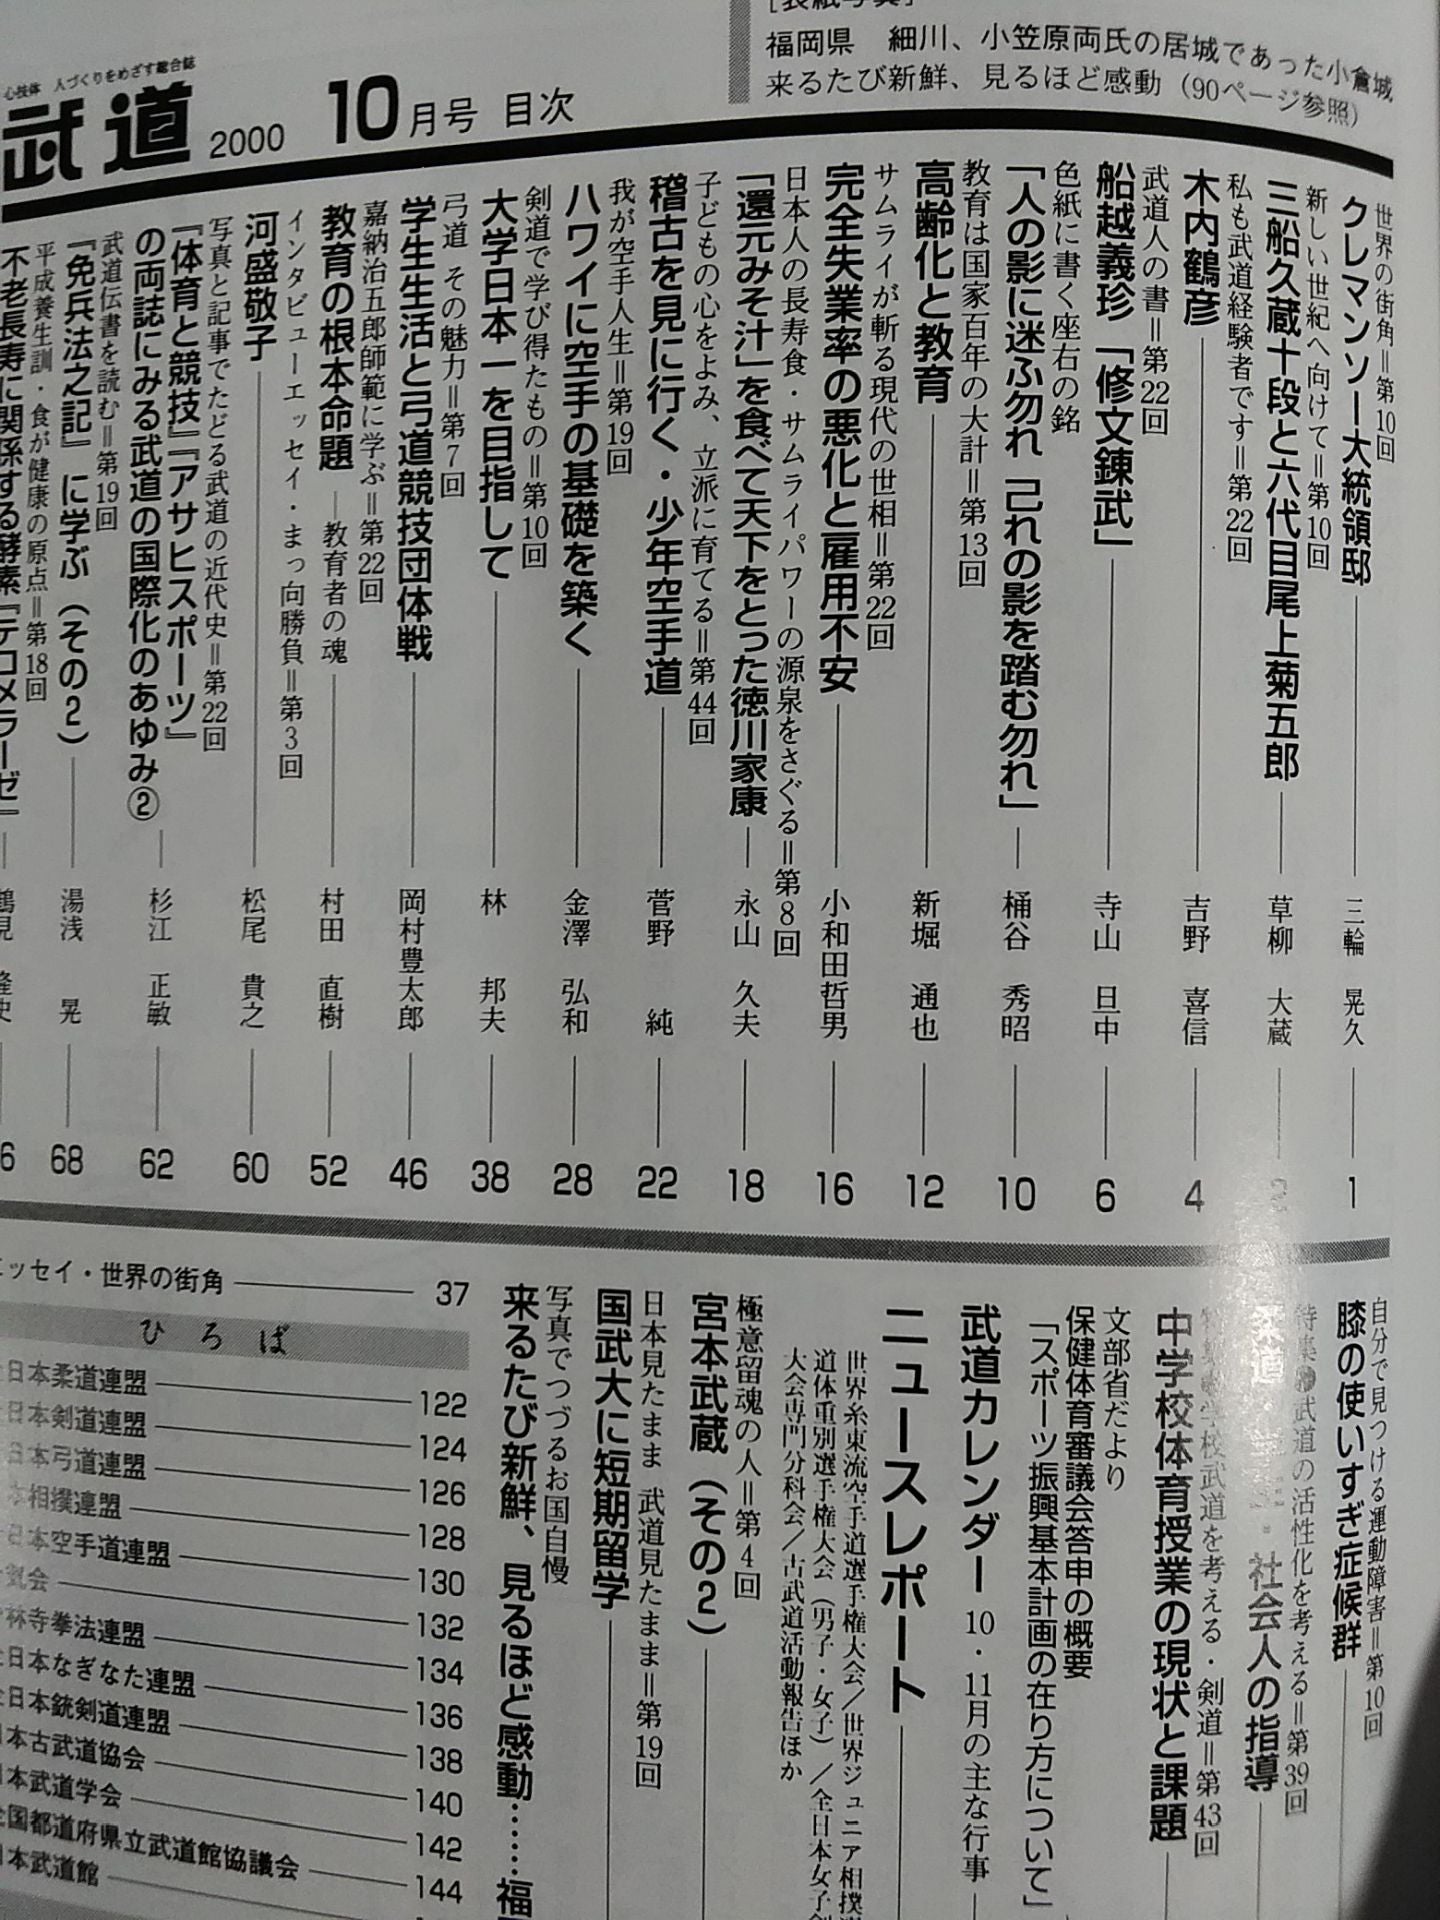 福岡県　細川、小笠原両氏の居城であった小倉城
来るたび新鮮、見るほど感動（90ページ参照）
心技体　人づくりをめざす総合誌
武道 2000 10月号 目次
世界の街角＝第10回
クレマンソー大統領邸 三輪 晃久 1
新しい世紀へ向けて＝第10回
三船久蔵十段と六代目尾上菊五郎 草柳 大蔵
私も武道経験者です＝第22回
木内鶴彦 吉野 喜信 4
武道人の書＝第22回
船越義珍「修文錬武」 寺山 旦中 6
色紙に書く座右の銘
「人の影に迷ふ勿れ 己れの影を踏む勿れ」 桶谷 秀昭 10
教育は国家百年の大計＝第13回
高齢化と教育 新堀 通也 12
サムライが斬る現代の世相＝第22回
完全失業率の悪化と雇用不安 小和田哲男 16
日本人の長寿食・サムライパワーの源泉をさぐる＝第8回
「還元みそ汁」を食べて天下をとった徳川家康 永山 久夫 18
子どもの心をよみ、立派に育てる＝第44回
稽古を見に行く・少年空手道 菅野 純 22
我が空手人生＝第19回
ハワイに空手の基礎を築く 金澤 弘和 28
剣道で学び得たもの＝第10回
大学日本一を目指して 林 邦夫 38
弓道 その魅力＝第7回
学生生活と弓道競技団体戦 岡村豊太郎 46
嘉納治五郎師範に学ぶ＝第22回
教育の根本命題 ―教育者の魂 村田 直樹 52
インタビューエッセイ・まっ向勝負＝第3回
河盛敬子 松尾 貴之 60
写真と記事でたどる武道の近代史＝第22回
『体育と競技』『アサヒスポーツ』
の両誌にみる武道の国際化のあゆみ② 杉江 正敏 62
武道伝書を読む＝第19回
『免兵法之記』に学ぶ（その2） 湯浅 晃 68
平成養生訓・食が健康の原点＝第18回
不老長寿に関係する酵素『テロメラーゼ』
自分で見つける運動障害＝第10回
膝の使いすぎ症候群
武道の活性化を考える＝第39回
社会人の指導
学校武道を考える・剣道＝第43回
中学校体育授業の現状と課題
文部省だより
保健体育審議会答申の概要
「スポーツ振興基本計画の在り方について」
武道カレンダー 10・11月の主な行事
ニュースレポート
世界糸東流空手道選手権大会／世界ジュニア相撲
道体重別選手権大会（男子・女子）／全日本女子
大会専門分科会／古武道活動報告ほか
極意留魂の人＝第4回
宮本武蔵（その2）
日本見たまま 武道見たまま＝第19回
国武大に短期留学
写真でつづるお国自慢
来るたび新鮮、見るほど感動……福
ッセイ・世界の街角 37
ひろば
日本柔道連盟 122
日本剣道連盟 124
日本弓道連盟 126
本相撲連盟 128
日本空手道連盟 130
気会 132
林寺拳法連盟 134
日本なぎなた連盟 136
日本銃剣道連盟 138
本古武道協会 140
本武道学会 142
国都道府県立武道館協議会 144
本武道館